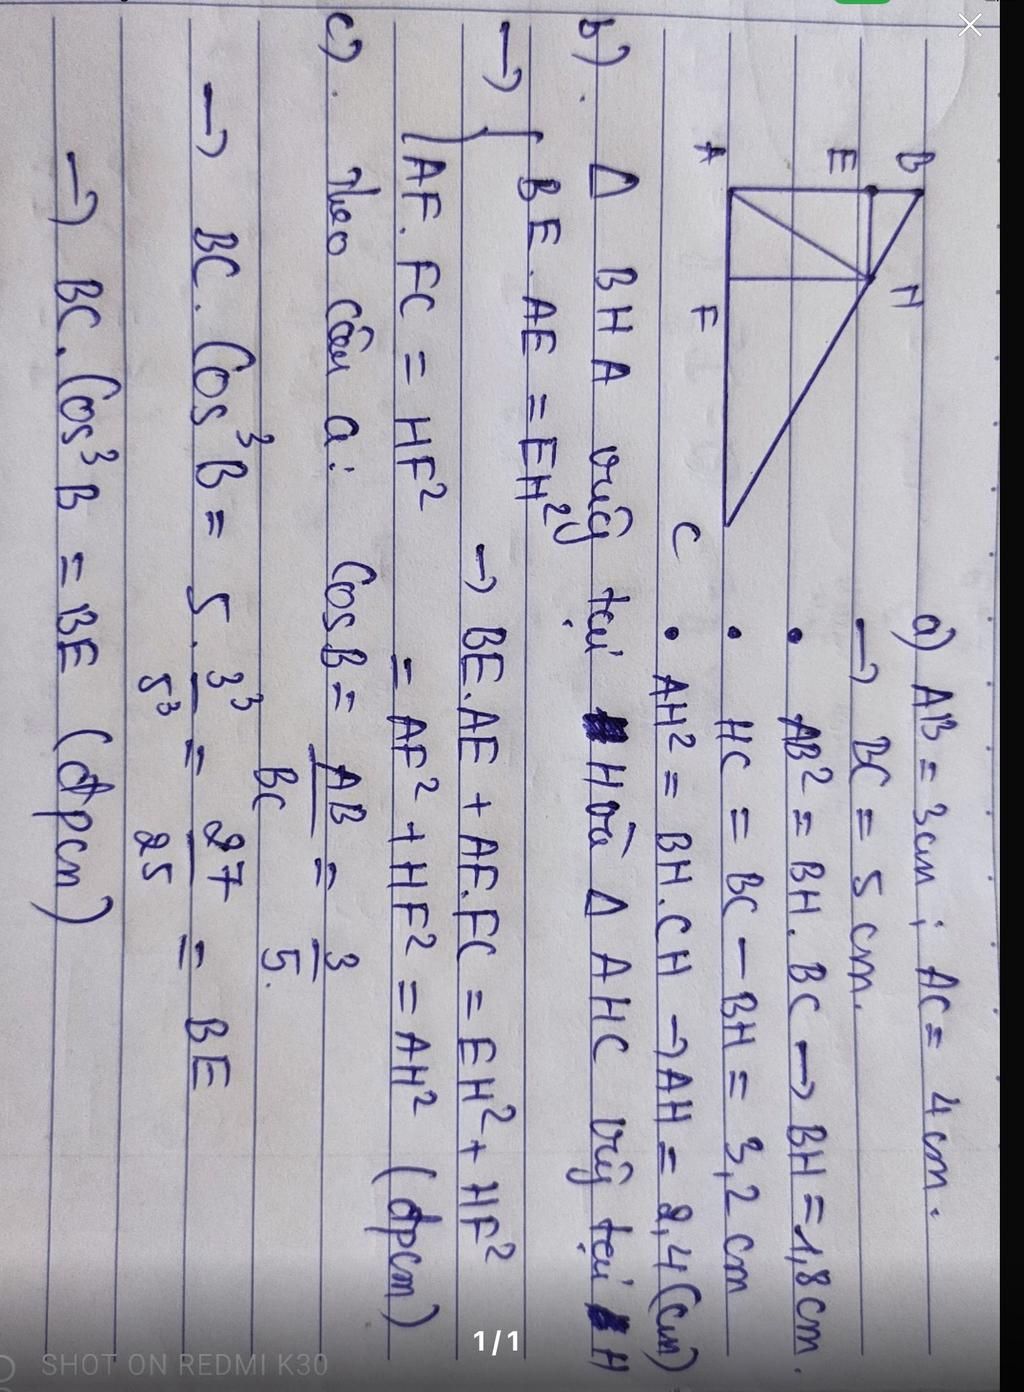 a) AB = 3cm ; AC = 4cm.
→ BC = 5cm.
• AB² = BH.BC → BH = 1,8cm.
• HC = BC - BH = 3,2 cm
• AH² = BH.CH → AH = 2,4(cm)
B
E
H
A
F
C
b). Δ BHA vuôg tại H và Δ AHC vuôg tại H
→ { BE.AE = EH²
AF.FC = HF²
→ BE.AE + AF.FC = EH² + HF²
= AF² + HF² = AH² (đpcm)
c). Theo câu a: Cos B = AB/BC = 3/5.
→ BC.Cos³B = 5.3³/5³ = 27/25 = BE
→ BC.Cos³B = BE (đpcm)
1/1
SHOT ON REDMI K30